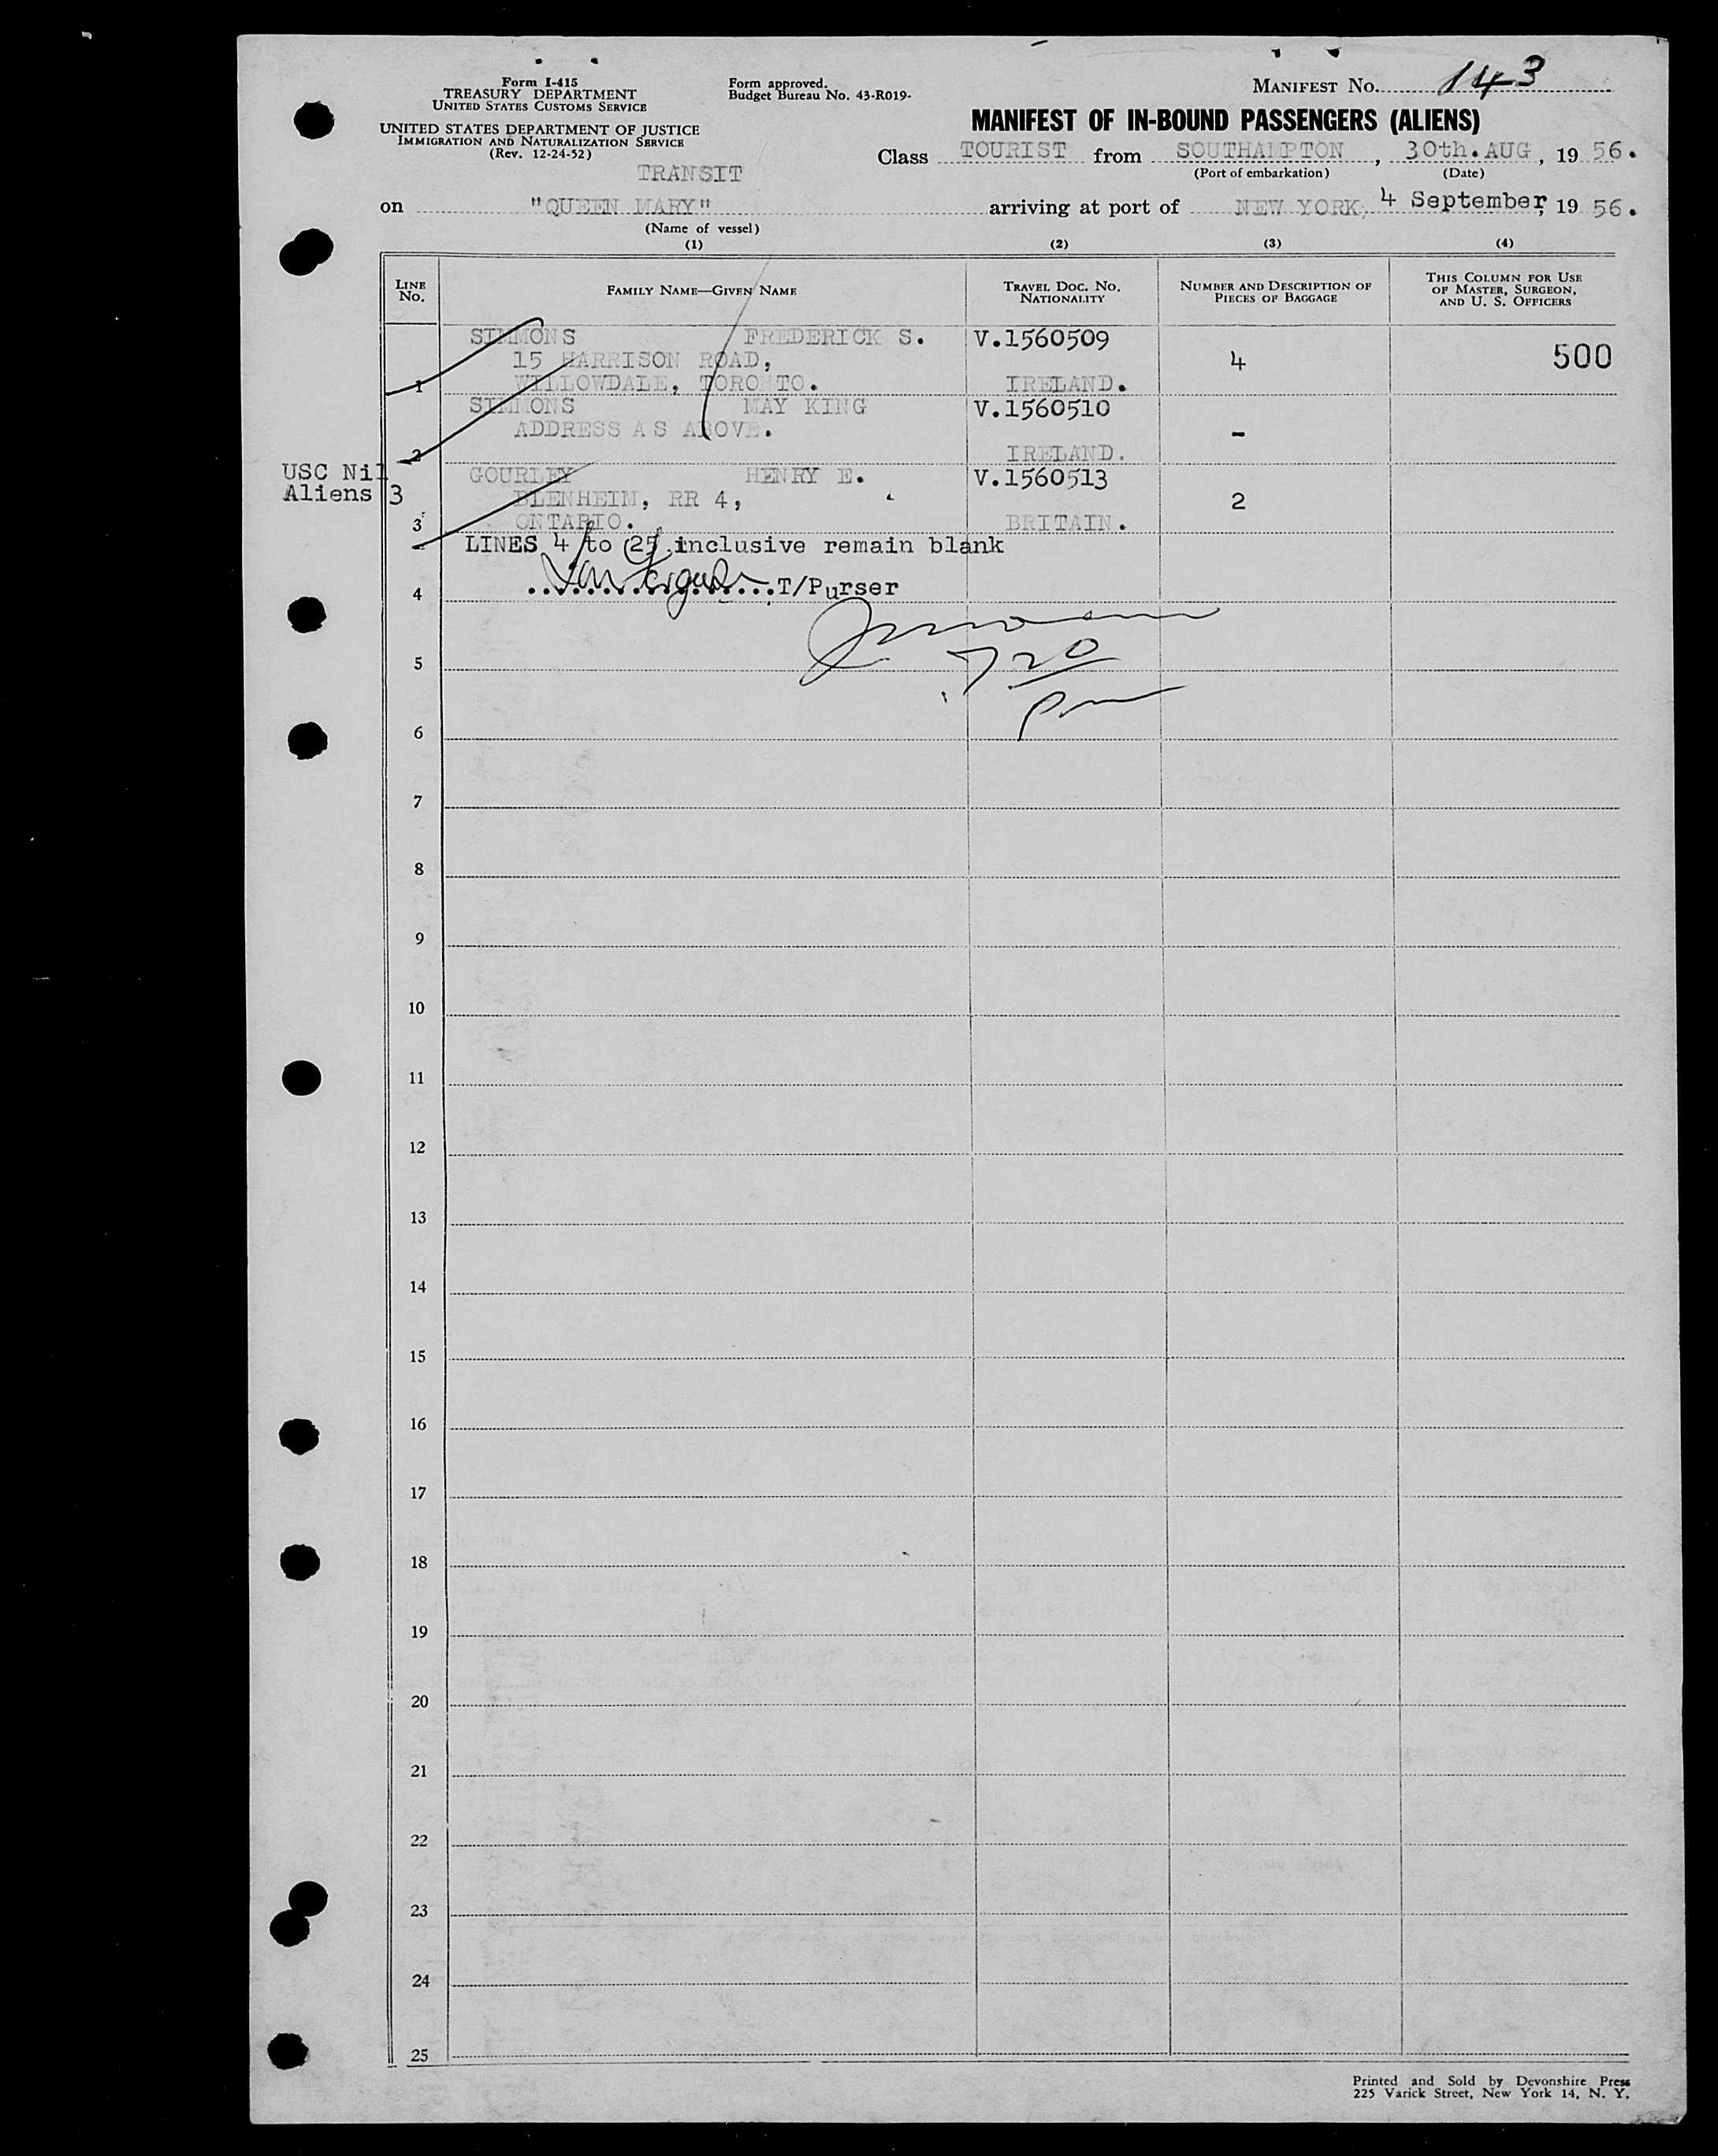 Form I-415
TREASURY DEPARTMENT
UNITED STATES CUSTOMS SERVICE
UNITED STATES DEPARTMENT OF JUSTICE
IMMIGRATION AND NATURALIZATION SERVICE
(Rev. 12-24-52)
Form approved.
Budget Bureau No. 43-R019-
MANIFEST No. 143
MANIFEST OF IN-BOUND PASSENGERS (ALIENS)
Class TOURIST from SOUTHAMPTON, 30th.AUG, 19 56.
(Port of embarkation) (Date)
TRANSIT
on "QUEEN MARY" arriving at port of NEW YORK, 4 September, 19 56.
(Name of vessel)
(1) (2) (3) (4)
LINE No. FAMILY NAME—GIVEN NAME TRAVEL DOC. No. NATIONALITY NUMBER AND DESCRIPTION OF PIECES OF BAGGAGE THIS COLUMN FOR USE OF MASTER, SURGEON, AND U. S. OFFICERS
SIMMONS FREDERICK S. V.1560509
15 HARRISON ROAD, 4 500
1 WILLOWDALE, TORONTO. IRELAND.
SIMMONS MAY KING V.1560510
ADDRESS AS ABOVE. -
2 IRELAND.
USC Nil
Aliens 3
GOURLEY HENRY E. V.1560513
BLENHEIM, RR 4, 2
3 ONTARIO. BRITAIN.
LINES 4 to 25 inclusive remain blank
4 T/Purser
5 720
pm
6
7
8
9
10
11
12
13
14
15
16
17
18
19
20
21
22
23
24
25
Printed and Sold by Devonshire Press
225 Varick Street, New York 14, N. Y.